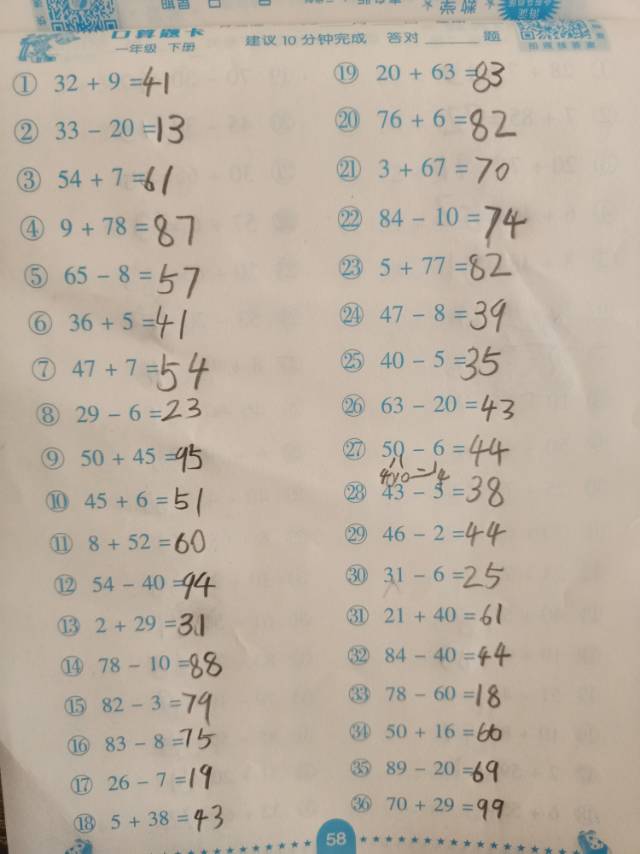 口算题卡
一年级 下册
建议10分钟完成 答对______题
① 32 + 9 =41
② 33 - 20 =13
③ 54 + 7 =61
④ 9 + 78 =87
⑤ 65 - 8 =57
⑥ 36 + 5 =41
⑦ 47 + 7 =54
⑧ 29 - 6 =23
⑨ 50 + 45 =95
⑩ 45 + 6 =51
⑪ 8 + 52 =60
⑫ 54 - 40 =94
⑬ 2 + 29 =31
⑭ 78 - 10 =88
⑮ 82 - 3 =79
⑯ 83 - 8 =75
⑰ 26 - 7 =19
⑱ 5 + 38 =43
⑲ 20 + 63 =83
⑳ 76 + 6 =82
㉑ 3 + 67 =70
㉒ 84 - 10 =74
㉓ 5 + 77 =82
㉔ 47 - 8 =39
㉕ 40 - 5 =35
㉖ 63 - 20 =43
㉗ 50 - 6 =44
㉘ 43 - 5 =38
㉙ 46 - 2 =44
㉚ 31 - 6 =25
㉛ 21 + 40 =61
㉜ 84 - 40 =44
㉝ 78 - 60 =18
㉞ 50 + 16 =66
㉟ 89 - 20 =69
㊱ 70 + 29 =99
58